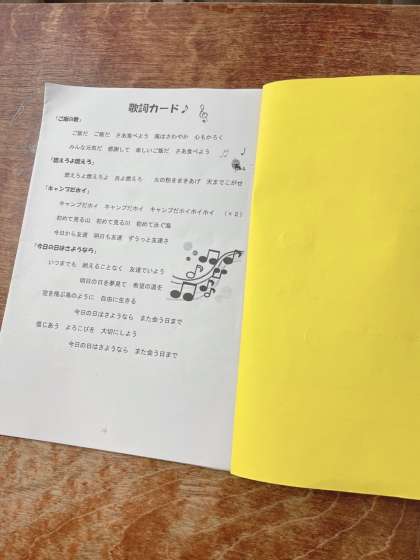 歌詞カード♪
「ご飯の歌」
ご飯だ ご飯だ さあ食べよう 風はさわやか 心もかろく
みんな元気だ 感謝して 楽しいご飯だ さあ食べよう
「燃えろよ燃えろ」
燃えろよ燃えろよ 炎よ燃えろ 火の粉をまきあげ 天までこがせ
「キャンプだホイ」
キャンプだホイ キャンプだホイ キャンプだホイホイホイ (×2)
初めて見る山 初めて見る川 初めて泳ぐ海
今日から友達 明日も友達 ずうっと友達さ
「今日の日はさようなら」
いつまでも 絶えることなく 友達でいよう
明日の日を夢見て 希望の道を
空を飛ぶ鳥のように 自由に生きる
今日の日はさようなら また会う日まで
信じあう よろこびを 大切にしよう
今日の日はさようなら また会う日まで